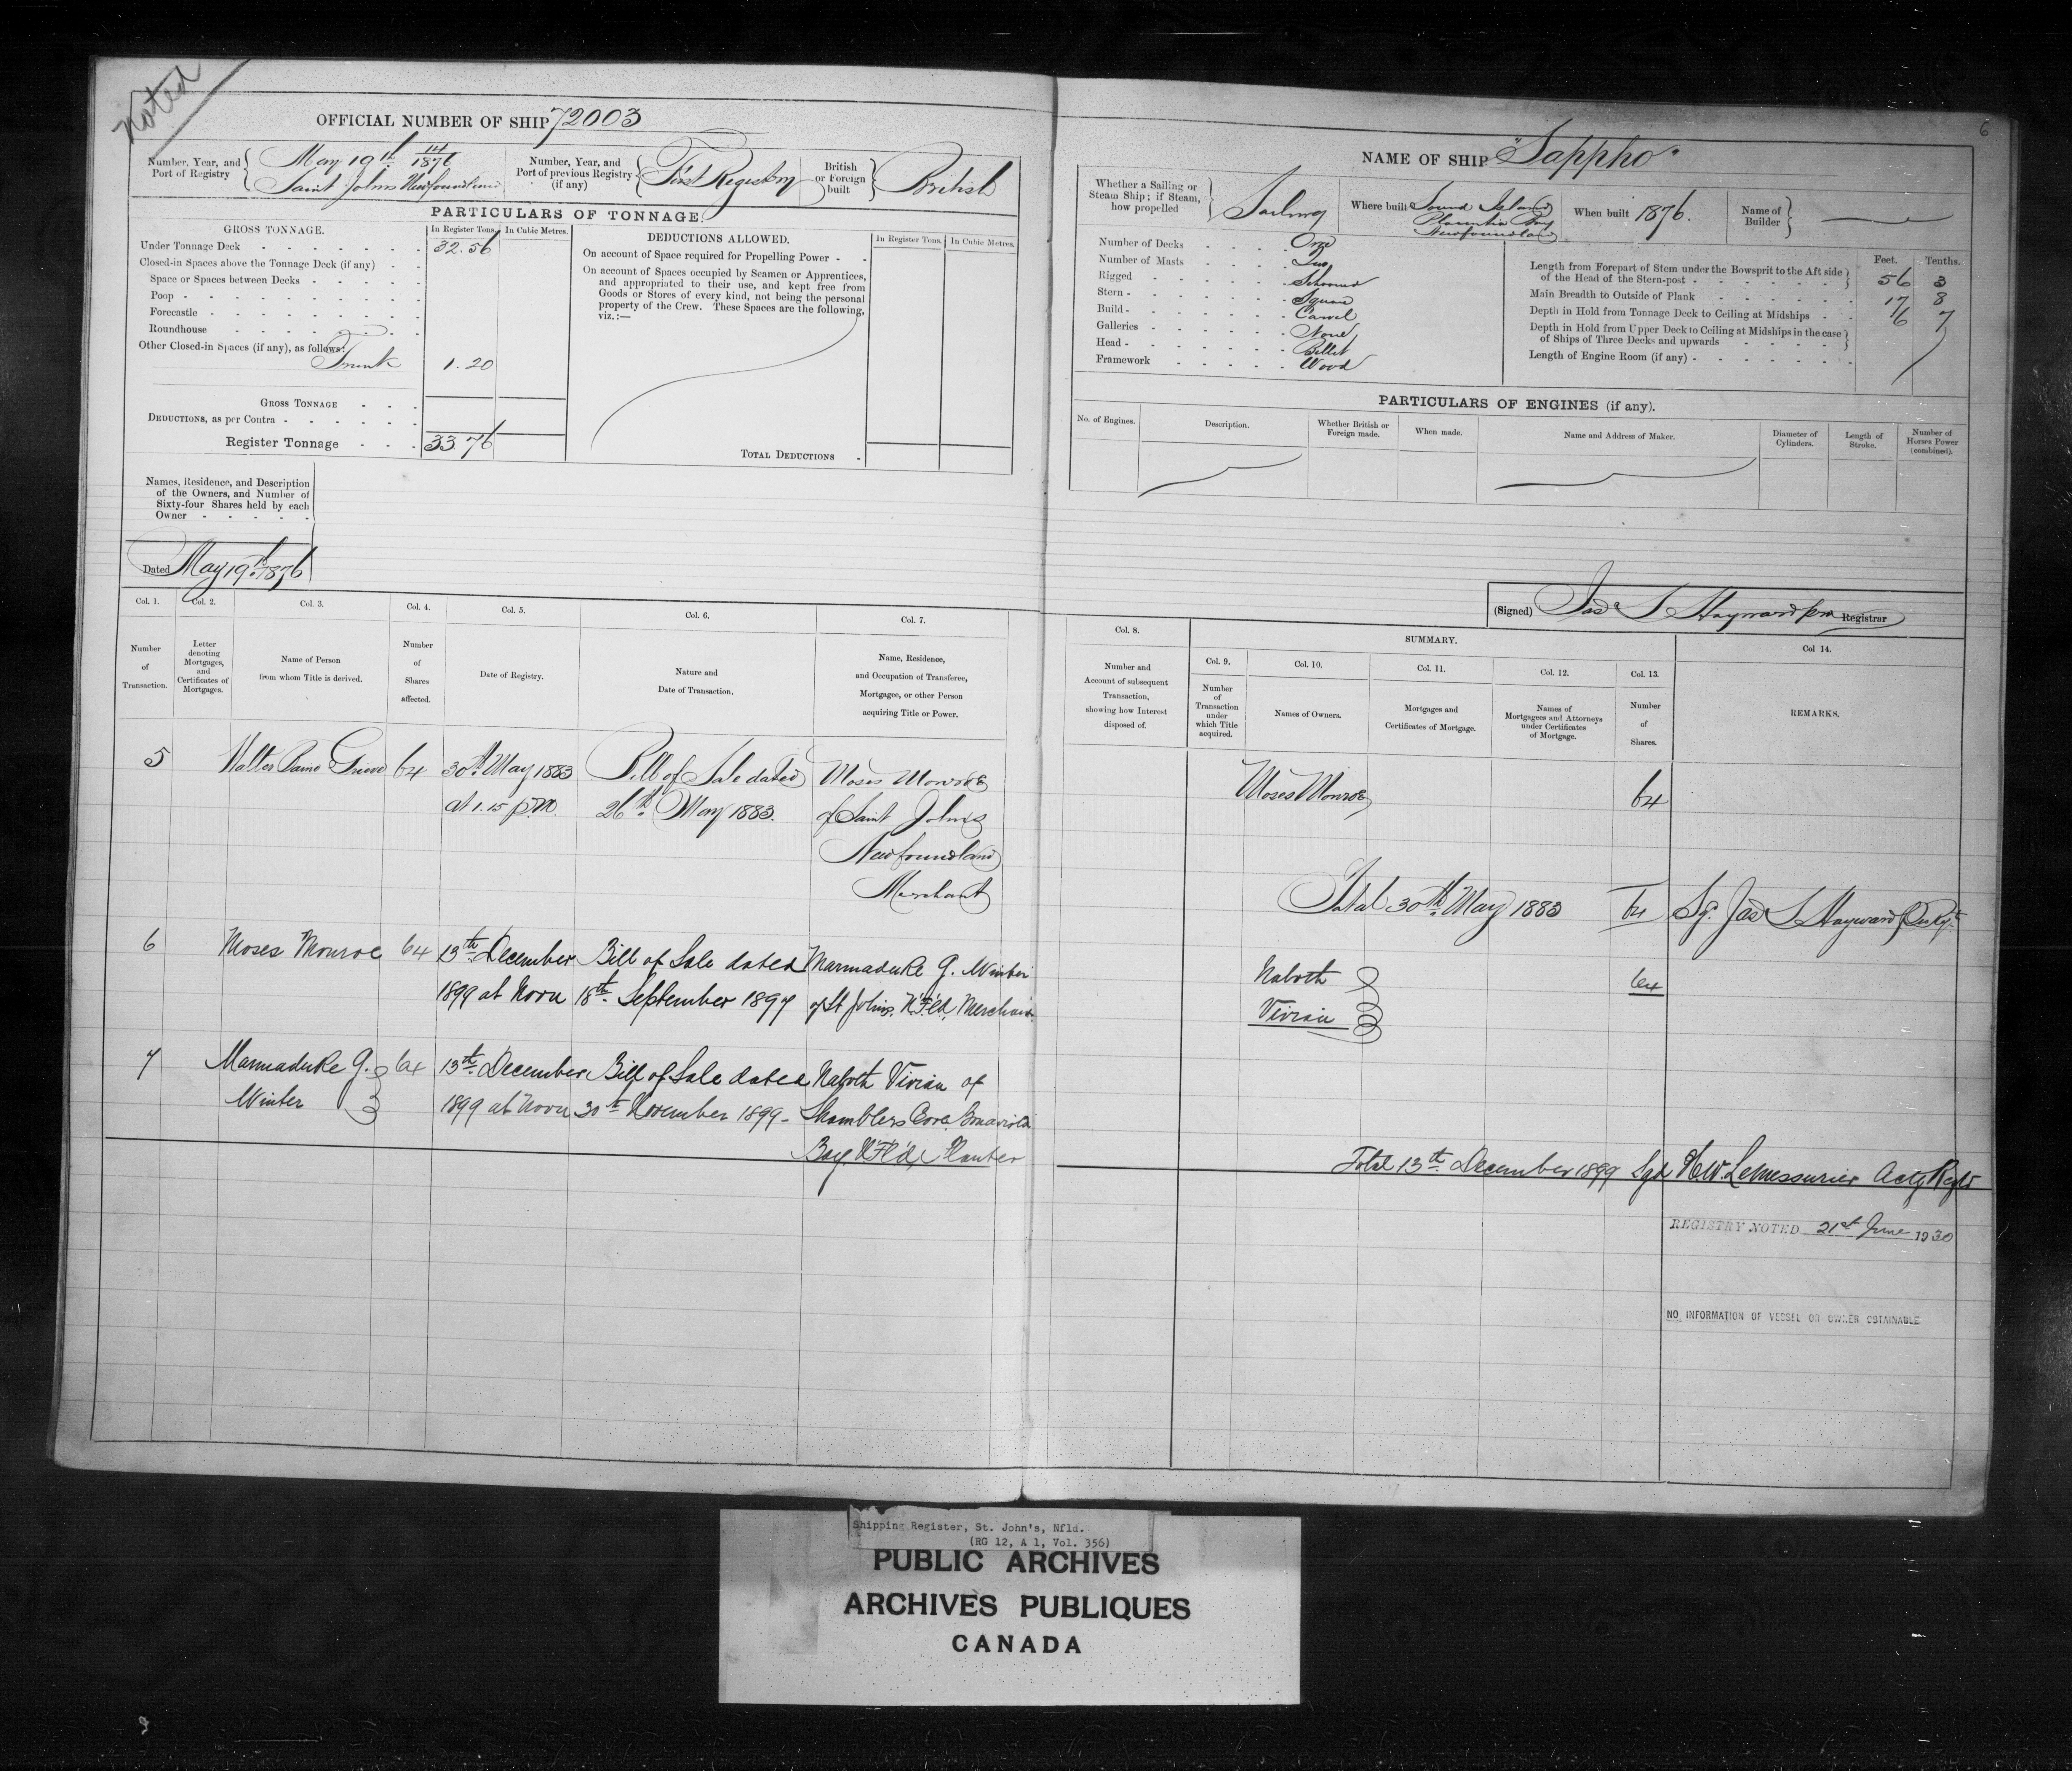 Noted
OFFICIAL NUMBER OF SHIP 72003
Number, Year, and Port of Registry
May 19th 14/1876
Saint Johns Newfoundland
Number, Year, and Port of previous Registry (if any)
First Registry
British or Foreign built
British
PARTICULARS OF TONNAGE.
GROSS TONNAGE.
In Register Tons.
In Cubic Metres.
Under Tonnage Deck 32.56
Closed-in Spaces above the Tonnage Deck (if any)
Space or Spaces between Decks
Poop
Forecastle
Roundhouse
Other Closed-in Spaces (if any), as follows:
Trunk 1.20
GROSS TONNAGE
DEDUCTIONS, as per Contra
Register Tonnage 33.76
DEDUCTIONS ALLOWED.
In Register Tons.
In Cubic Metres.
On account of Space required for Propelling Power
On account of Spaces occupied by Seamen or Apprentices,
and appropriated to their use, and kept free from
Goods or Stores of every kind, not being the personal
property of the Crew. These Spaces are the following,
viz.:—
TOTAL DEDUCTIONS
Names, Residence, and Description
of the Owners, and Number of
Sixty-four Shares held by each
Owner
Dated May 19th 1876
Col. 1.
Number of Transaction.
Col. 2.
Letter denoting Mortgages, and Certificates of Mortgages.
Col. 3.
Name of Person from whom Title is derived.
Col. 4.
Number of Shares affected.
Col. 5.
Date of Registry.
Col. 6.
Nature and Date of Transaction.
Col. 7.
Name, Residence, and Occupation of Transferee, Mortgagee, or other Person acquiring Title or Power.
5 Walter Grieve 64 30th May 1883 Bill of Sale dated Moses Monroe
at 1.15 p.m. 26th May 1883. of Saint Johns
Newfoundland
Merchant
6 Moses Monroe 64 13th December Bill of Sale dated Marmaduke G. Winter
1899 at Noon 18th September 1897 of St Johns, N'F'ld, Merchant
7 Marmaduke G. 64 13th December Bill of Sale dated Naboth Vivian of
Winter 1899 at Noon 30th November 1899 - Shamblers Cove Bonavista
Bay N'F'ld, Planter
6
NAME OF SHIP "Sappho"
Whether a Sailing or Steam Ship; if Steam, how propelled
Sailing
Where built
Sound Island
Placentia Bay
Newfoundland
When built 1876.
Name of Builder
Number of Decks One
Number of Masts Two
Rigged Schooner
Stern Square
Build Carvel
Galleries None
Head Billet
Framework Wood
Feet. Tenths.
Length from Forepart of Stem under the Bowsprit to the Aft side of the Head of the Stern-post 56 3
Main Breadth to Outside of Plank 17 8
Depth in Hold from Tonnage Deck to Ceiling at Midships 6 7
Depth in Hold from Upper Deck to Ceiling at Midships in the case of Ships of Three Decks and upwards
Length of Engine Room (if any)
PARTICULARS OF ENGINES (if any).
No. of Engines.
Description.
Whether British or Foreign made.
When made.
Name and Address of Maker.
Diameter of Cylinders.
Length of Stroke.
Number of Horses Power (combined).
(Signed) Jas S Hayward Registrar
Col. 8.
Number and Account of subsequent Transaction, showing how Interest disposed of.
SUMMARY.
Col. 9.
Number of Transaction under which Title acquired.
Col. 10.
Names of Owners.
Col. 11.
Mortgages and Certificates of Mortgage.
Col. 12.
Names of Mortgagees and Attorneys under Certificates of Mortgage.
Col. 13.
Number of Shares.
Col 14.
REMARKS.
Moses Monroe 64
Total 30th May 1883 64 Sg. Jas S Hayward
Naboth 64
Vivian
Total 13th December 1899 Sgd H.W. LeMessurier Actg Regtr
REGISTRY NOTED 21st June 1930
NO INFORMATION OF VESSEL OR OWNER OBTAINABLE.
Shipping Register, St. John's, Nfld.
(RG 12, A 1, Vol. 356)
PUBLIC ARCHIVES
ARCHIVES PUBLIQUES
CANADA